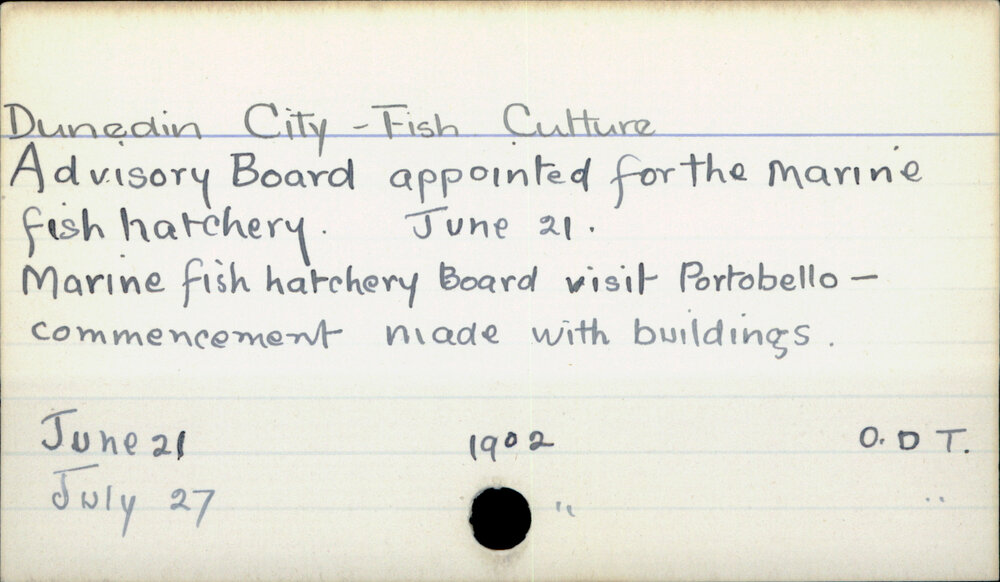 Dunedin City - Fish Culture
Advisory Board appointed for the marine
fish hatchery. June 21.
Marine fish hatchery Board visit Portobello -
commencement made with buildings.
June 21 1902 O. D T.
July 27 " "